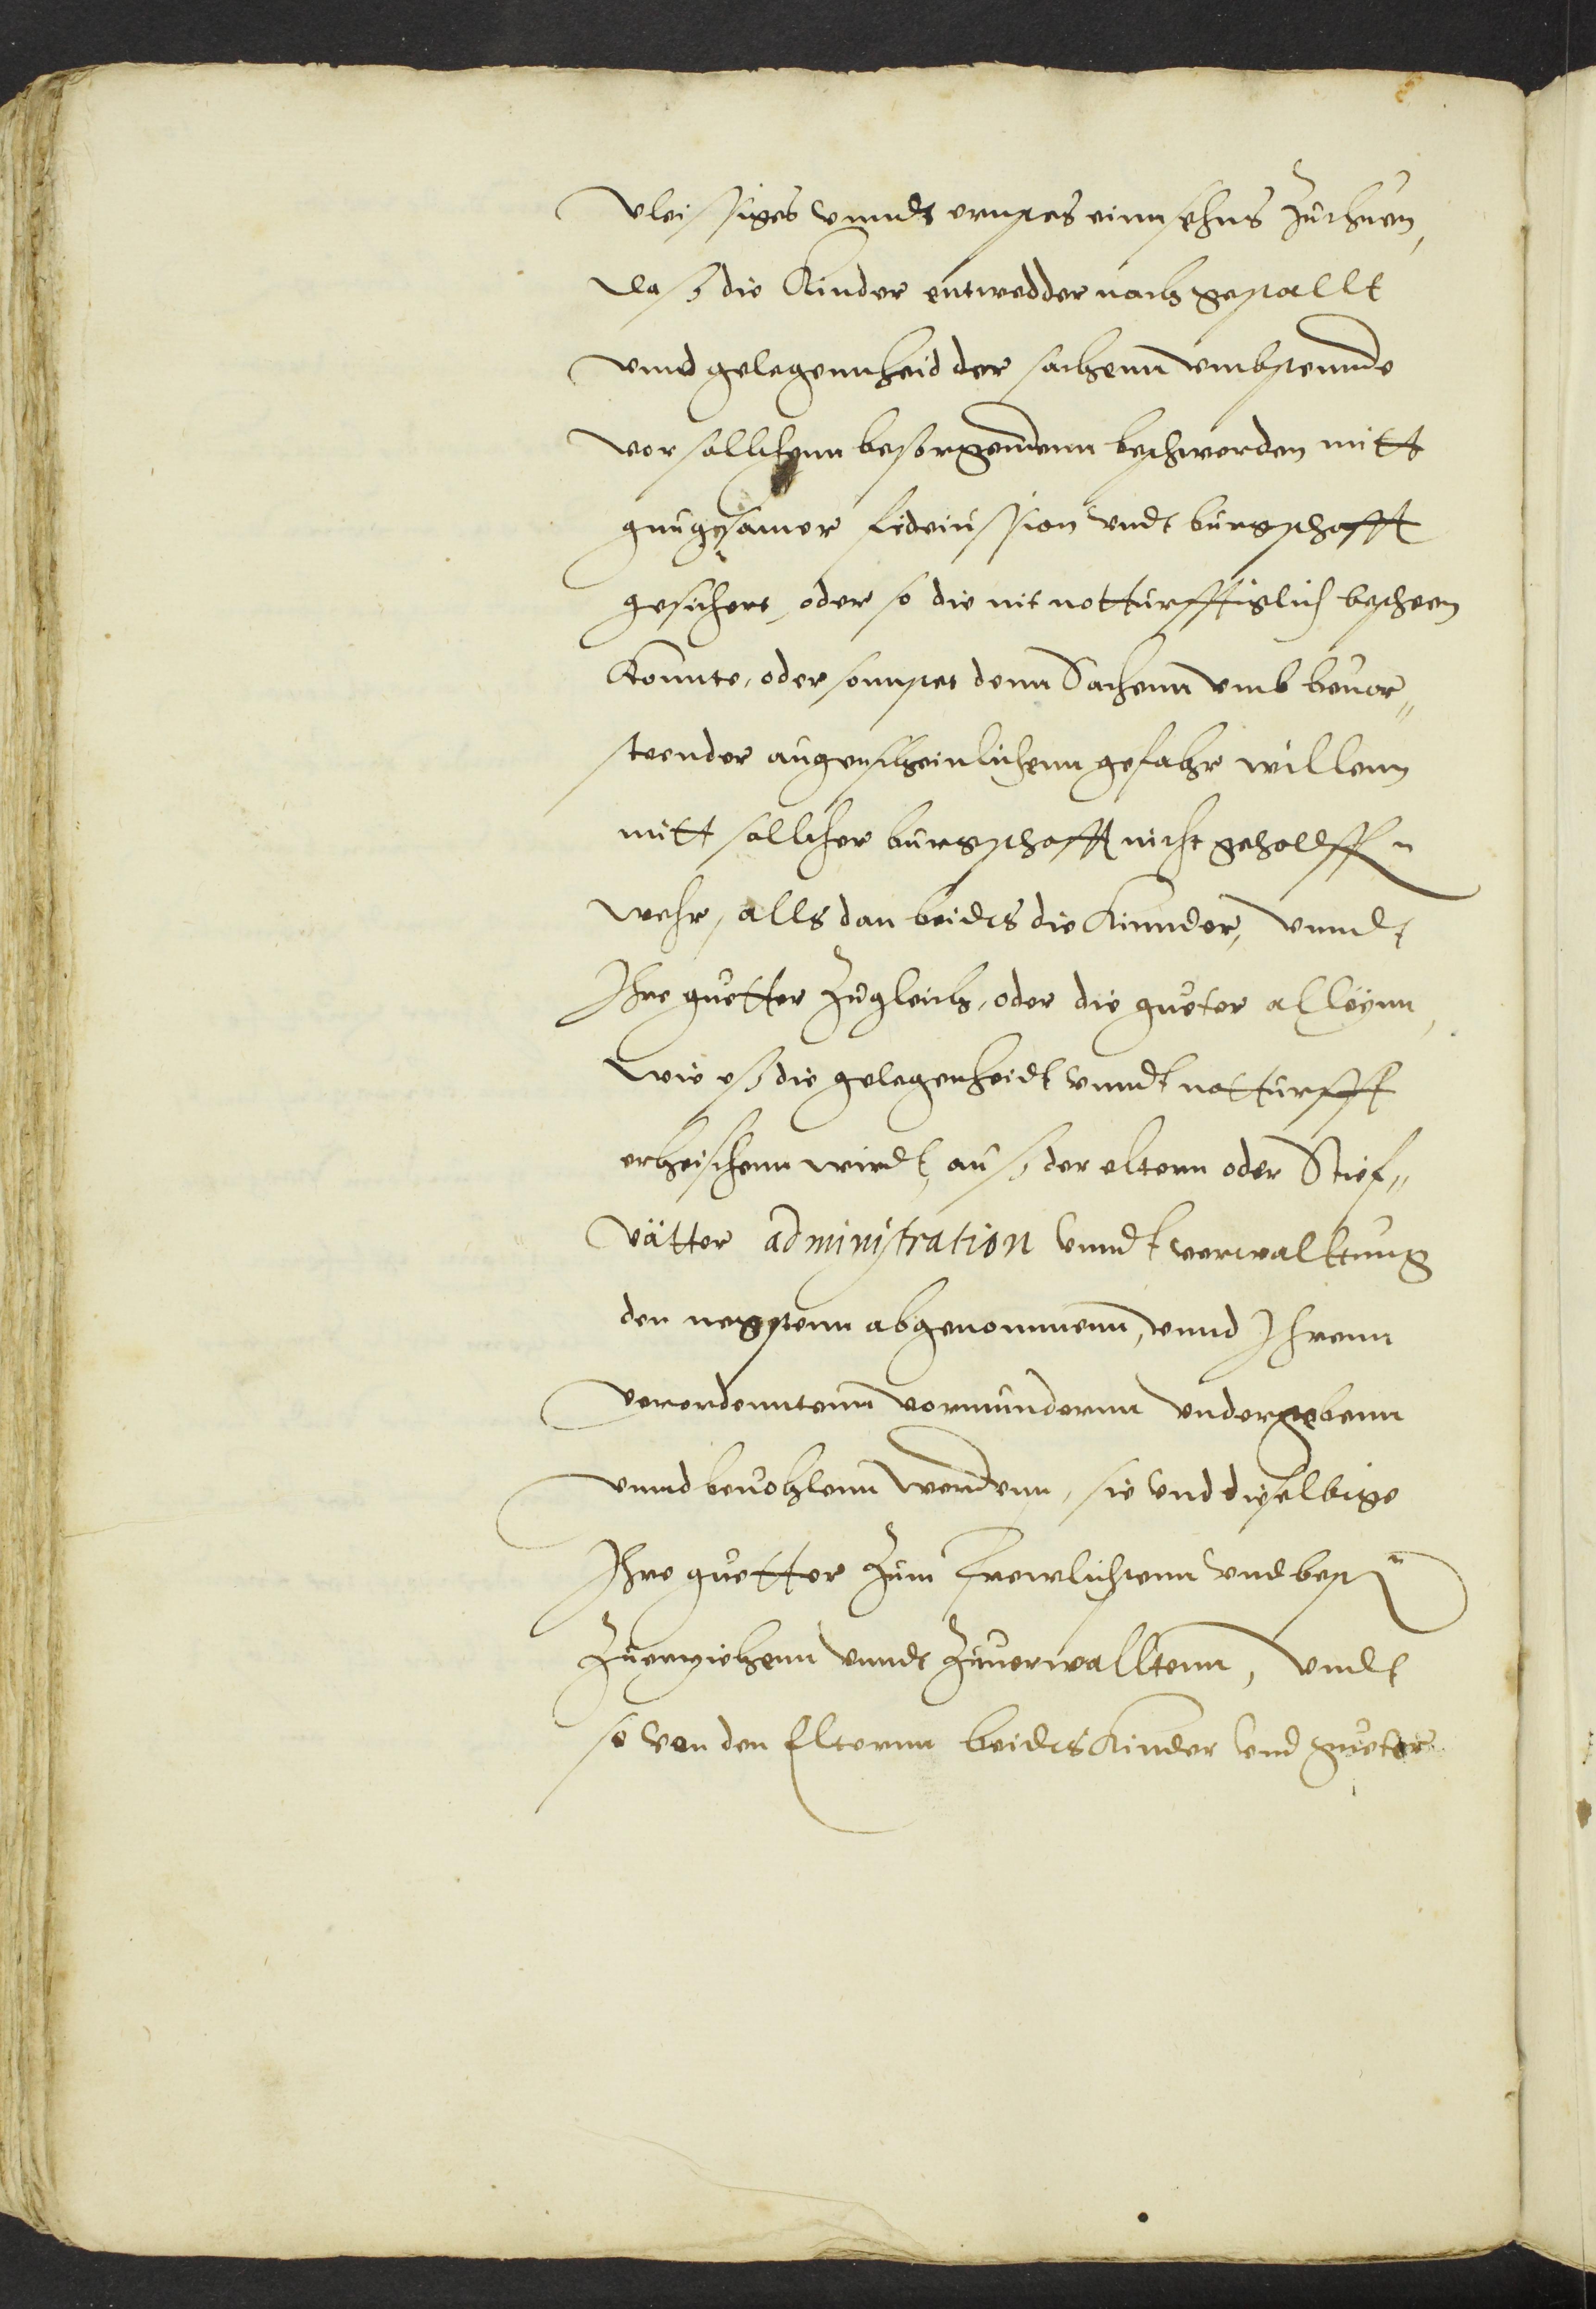 vleissiges vnndt ernstes einnsehns zuthuen,
daß die Kinder entwedder nach gestallt
vnnd gelegennheid der sachenn vmbstennde
vor sollchenn besorgendenn beschwerden mitt
gnugsamer fideiussion vndt bürgschafft
gesichert, oder so die nit notturfftiglich bescheen
Konnte, oder sonnstet denn Sachenn vmb beuor„
steender augenscheinlichenn gefahr willenn
mitt sollcher bürgschafft nicht geholffen
wehr, alls dan beides die Kinnder, vnndt
Ihre guetter zugleich, oder die gueter alleynn,
wie eß die gelegenheidt vnndt notturfft
erheischenn wirdt, auß der eltern oder Stief„
vätter administration vnndt verwalttung
den negstenn abgenommenn, vnnd Ihrenn
verordenntenn vormündernn vndergebenn
vnnd beuohlenn werdenn, sie vnd dieselbige
Ihre guetter zum trewlichstenn vnd bestenn
zuerziehenn vnndt zuuerwalltenn, vndt
so von den Elternn beides Kinder vnd gueter